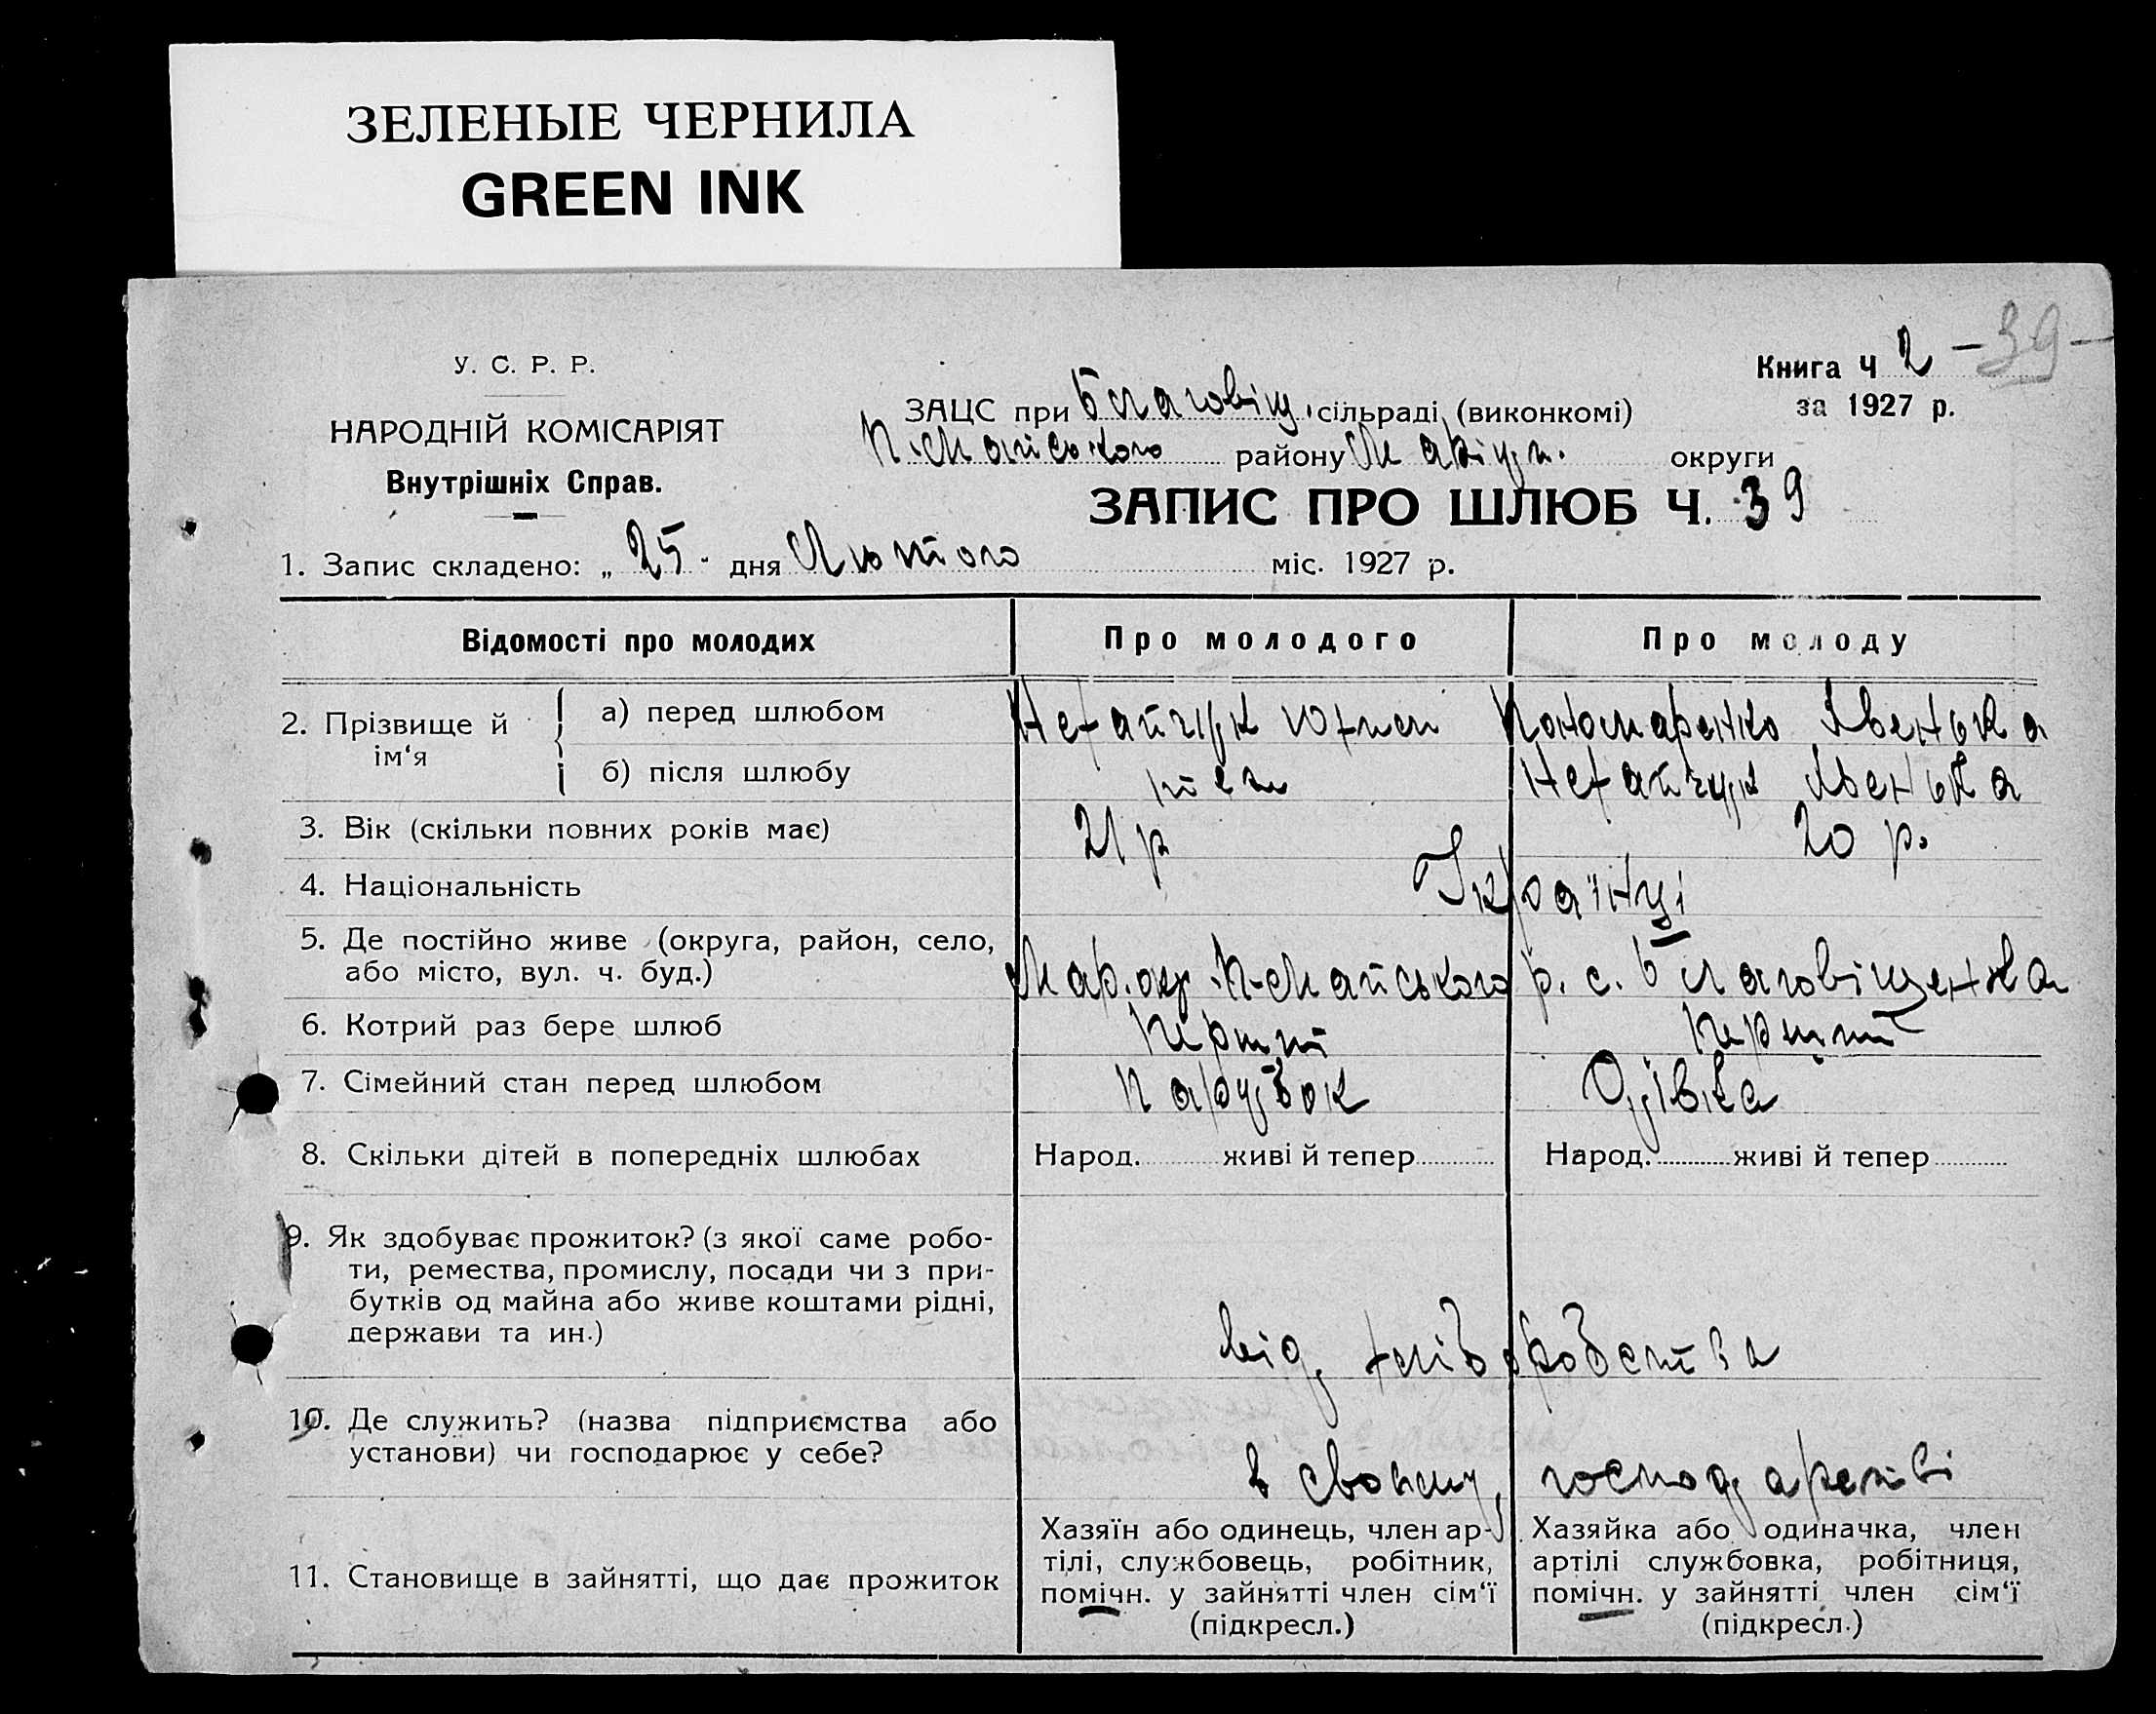 ЗЕЛЕНЫЕ ЧЕРНИЛА
GREEN INK
У. С. Р. Р.
НАРОДНІЙ КОМІСАРІЯТ
Внутрішніх Справ.
Книга Ч 2 – 39 –
за 1927 р.
ЗАЦС при Благовіщ. сільраді, (виконкомі)
П-Майського району Маріуп. округи
ЗАПИС ПРО ШЛЮБ Ч. 39
1. Запис складено: „ 25 " дня Лютого міс. 1927 р.
Відомості про молодих Про молодого Про молоду
2. Прізвище й ім‘я
а) перед шлюбом Нефайчук Пономаренко Явенька
б) після шлюбу Нефайчук Явенька
3. Вік (скільки повних років має) 21 р 20 р.
4. Національність Українці
5. Де постійно живе (округа, район, село,
або місто, вул. ч. буд.) Мар. окр. П-Майського р. с. Благовіщенка
6. Котрий раз бере шлюб перший перший
7. Сімейний стан перед шлюбом парубок Дівка
8. Скільки дітей в попередніх шлюбах Народ. живі й тепер Народ. живі й тепер
9. Як здобуває прожиток? (з якої саме робо-
ти, ремества, промислу, посади чи з при-
бутків од майна або живе коштами рідні,
держави та ин.) від хліборобства
10. Де служить? (назва підприємства або
установи) чи господарює у себе? в своьму господарстві
11. Становище в зайнятті, що дає прожиток
Хазяїн або одинець, член ар-
тілі, службовець, робітник,
помічн. у зайнятті член сім‘ї
(підкресл.)
Хазяйка або одиначка, член
артілі службовка, робітниця,
помічн. у зайнятті член сім‘ї
(підкресл.)